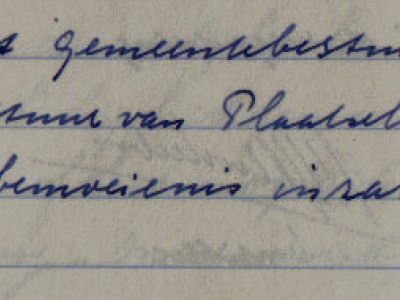 t gemeentebestuu
stuur van Plaatsel
bemoeienis inza